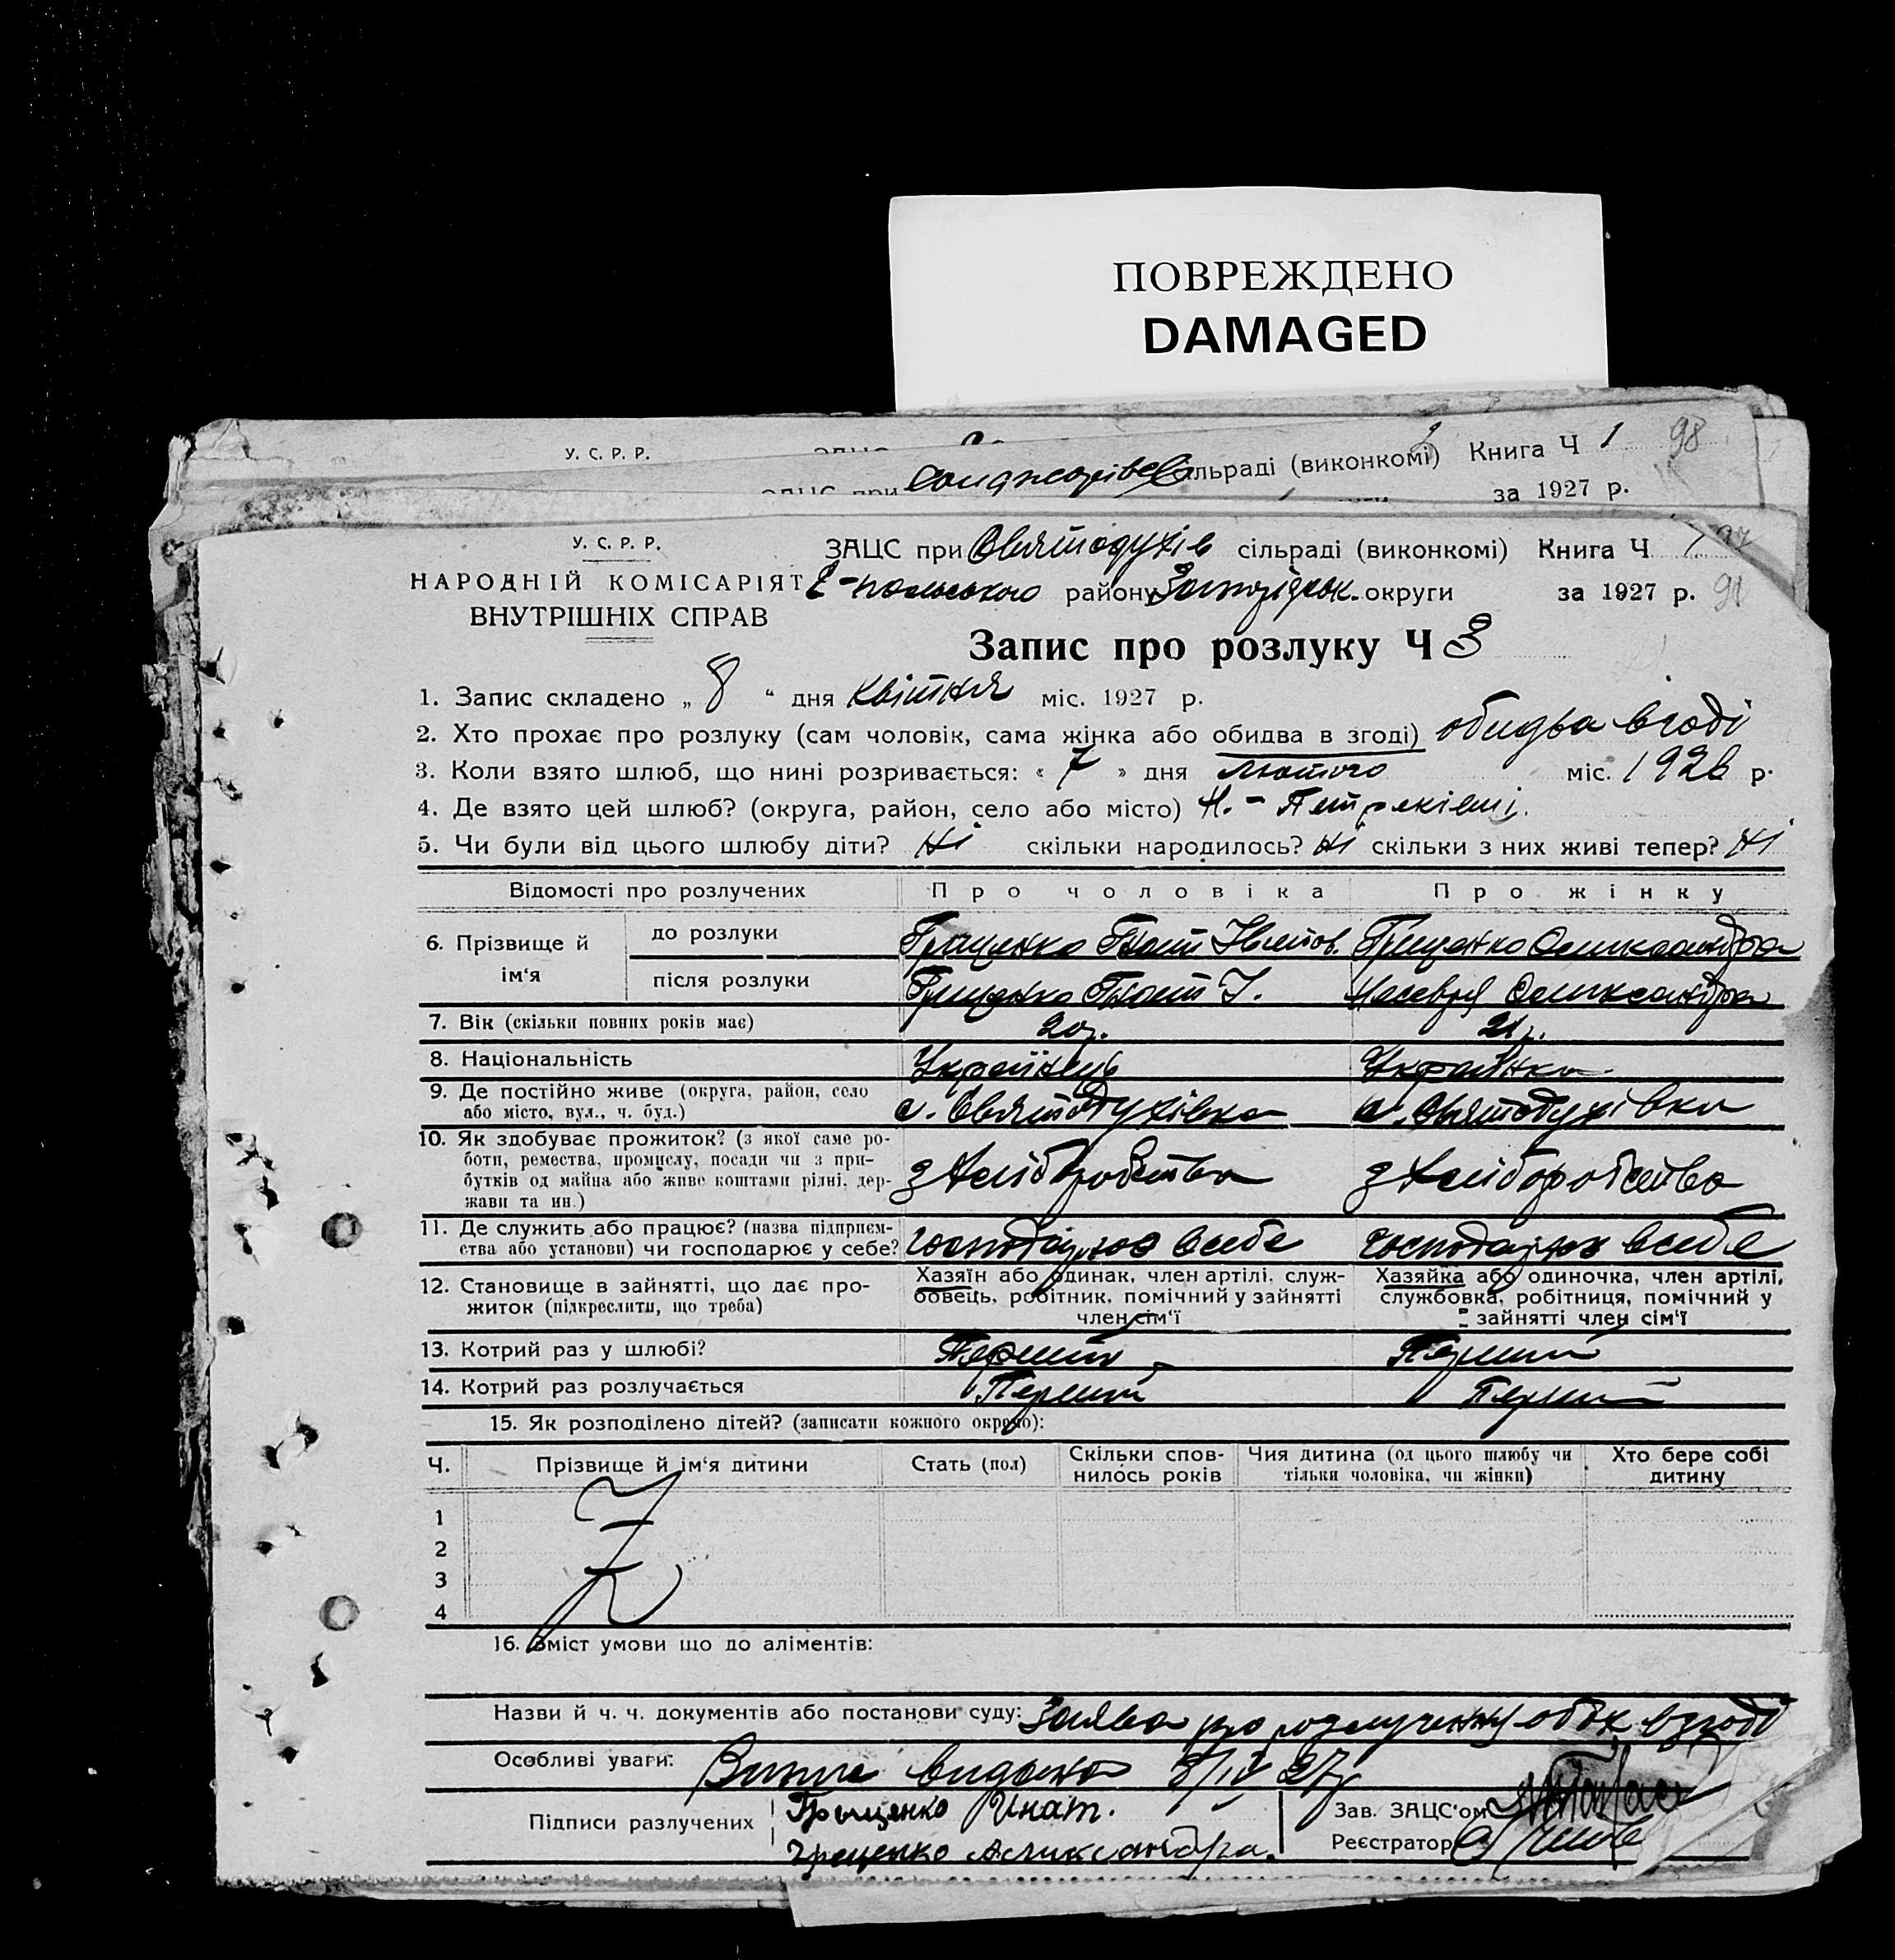 ПОВРЕЖДЕНО
DAMAGED
У. С. Р. Р.
сільраді (виконкомі) Книга Ч 1 98
за 1927 р.
У. С. Р. Р.
НАРОДНІЙ КОМІСАРІЯТ
ВНУТРІШНІХ СПРАВ
ЗАЦС при Святодухів сільраді (виконкомі) Книга Ч
району округи за 1927 р.
Запис про розлуку Ч 3
1. Запис складено „ 8 “ дня квітня міс. 1927 р.
2. Хто прохає про розлуку (сам чоловік, сама жінка або обидва в згоді) обидва вгоді
3. Коли взято шлюб, що нині розривається: « 7 » дня лютого міс. 1926 р.
4. Де взято цей шлюб? (округа, район, село або місто)
5. Чи були від цього шлюбу діти? Ні скільки народилось? Ні скільки з них живі тепер? Ні
Відомості про розлучених Про чоловіка Про жінку
6. Прізвище й ім‘я
до розлуки Грищенко Гнат Грищенко Олександра
після розлуки Грищенко Гнат І. Олександра
7. Вік (скільки повних років має) 20 р. 21 р.
8. Національність Українець Українка
9. Де постійно живе (округа, район, село
або місто, вул., ч. буд.) с. Святодухівка с. Святодухівка
10. Як здобуває прожиток? (з якої саме ро-
боти, ремества, промислу, посади чи з при-
бутків од майна або живе коштами рідні, дер-
жави та ин.) з хліборобства з хліборобства
11. Де служить або працює? (назва підприєм-
ства або установи) чи господарює у себе? господарює всебе господарює всебе
12. Становище в зайнятті, що дає про-
житок (підкреслити, що треба)
Хазяїн або одинак, член артілі, служ-
бовець, робітник, помічний у зайнятті
член сім‘ї
Хазяйка або одиночка, член артілі,
службовка, робітниця, помічний у
зайнятті член сім‘ї
13. Котрий раз у шлюбі? Перший Перший
14. Котрий раз розлучається Перший Перший
15. Як розподілено дітей? (записати кожного окремо):
Ч. Прізвище й ім‘я дитини Стать (пол) Скільки спов-
нилось років Чия дитина (од цього шлюбу чи
тільки чоловіка, чи жінки) Хто бере собі
дитину
1
2
3
4
16. Зміст умови що до аліментів:
Назви й ч. ч. документів або постанови суду: Заява про розлучення обох взгоді
Особливі уваги: Випис видано 8/IV 27 р
Підписи разлучених Грыщенко Игнат.
Грещенко Аликсандра.
Зав. ЗАЦС‘ом
Реєстратор